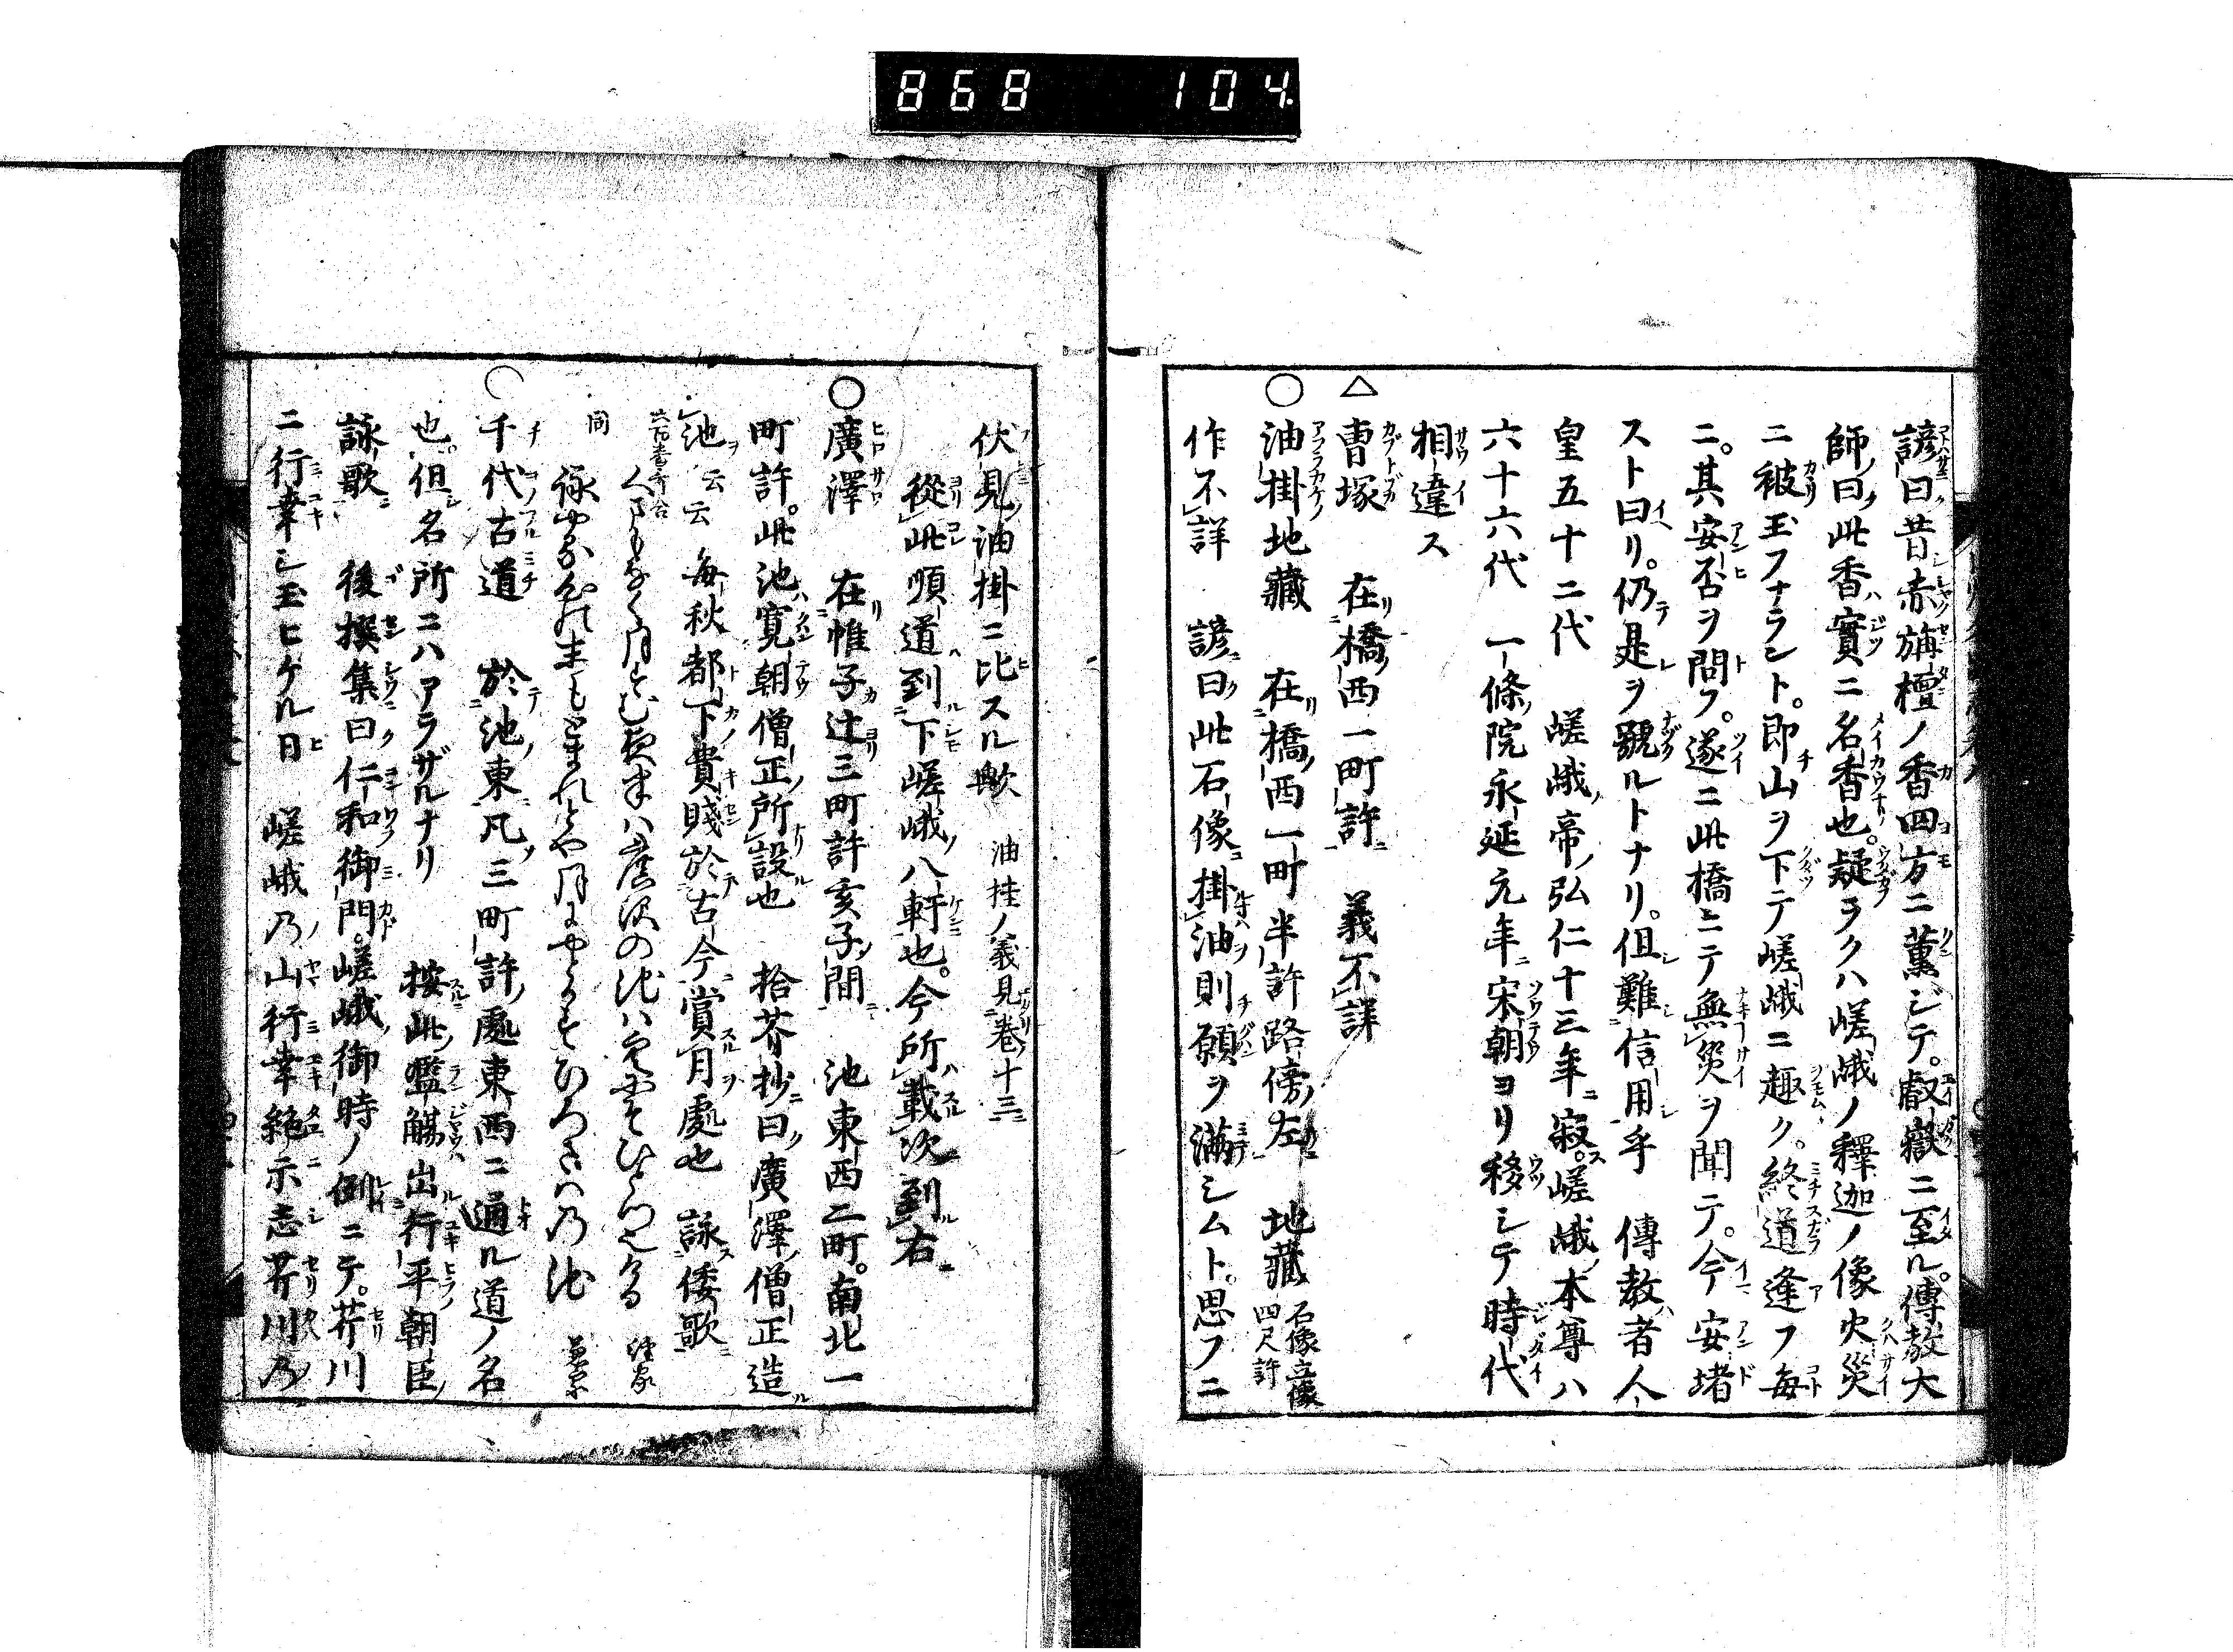 868 104
諺曰昔赤旃檀ノ香四方ニ薫ジテ。叡嶽ニ至ル。傳敎大
師ノ曰此香實ニ名香也。疑ラクハ嵯峨ノ釋迦ノ像火災
ニ被玉フナラント。即山ヲ下テ嵯峨ニ趣ク。終道逢フ毎
ニ。其安否ヲ問フ。遂ニ此橋ニテ無災ヲ聞テ。今安堵
スト曰リ。仍是ヲ號ルトナリ。但難信用乎 傳教者人
皇五十二代 嵯峨ノ帝ノ弘仁十三年ニ寂ス。嵯峨ノ本尊ハ
六十六代 一條ノ院永延元年ニ宋朝ヨリ移シテ時代
相違ス
△曹塚 在橋ノ西一町許 義不詳
○油掛地藏 在橋ノ西一町半許路傍ノ左 地藏 石像立像 四尺許
作不詳 諺曰此石像掛油則願ヲ滿シムト。思フニ
伏見ノ油掛ニ比スル歟 油挂ノ義見卷ノ十三
從此順道到下嵯峨ノ八軒也。今所載次到右
○廣澤 在帷子辻三町許亥子ノ間 池東西二町。南北一
町許。此池寛朝僧正ノ所設也 拾芥抄曰廣澤ノ僧正造
池云云 毎秋都下貴賤於古今賞月處也 詠倭歌
同
○千代古道 於池ノ東凡三町許ノ處東西ニ通ル道ノ名
也。但名所ニハアラザルナリ 按此濫觴出行平朝臣ノ
詠歌 後撰集曰仁和御門。嵯峨ノ御時ノ例ニテ。芹川
ニ行幸シ玉ヒケル日 嵯峨乃山行幸絶示志芹川乃